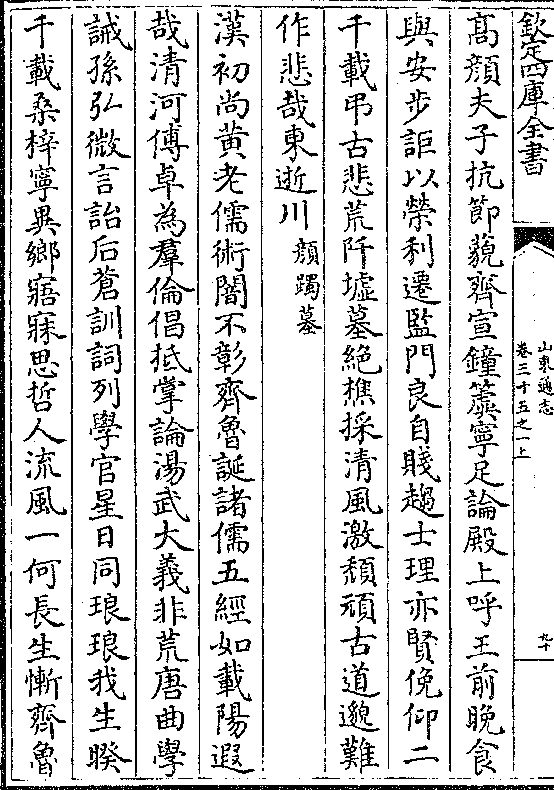 欽定四庫全書
山東通志
卷三十五之一上
九十
高顔夫子抗節藐齊宣鐘簴寧足論殿上呼王前晚食
與安步詎以榮利遷監門良自賤趨士理亦賢俛仰二
千載弔古悲荒阡墟墓絶樵採清風激頽頑古道邈難
作悲哉東逝川 顔蠋墓
漢初尚黄老儒術闇不彰齊魯誕諸儒五經如載陽遐
哉清河傅卓為羣倫倡抵掌論湯武大義非荒唐曲學
誡孫弘微言詒后蒼訓詞列學官星日同琅琅我生暌
千載桑梓寧異鄉寤寐思哲人流風一何長生慚齊魯